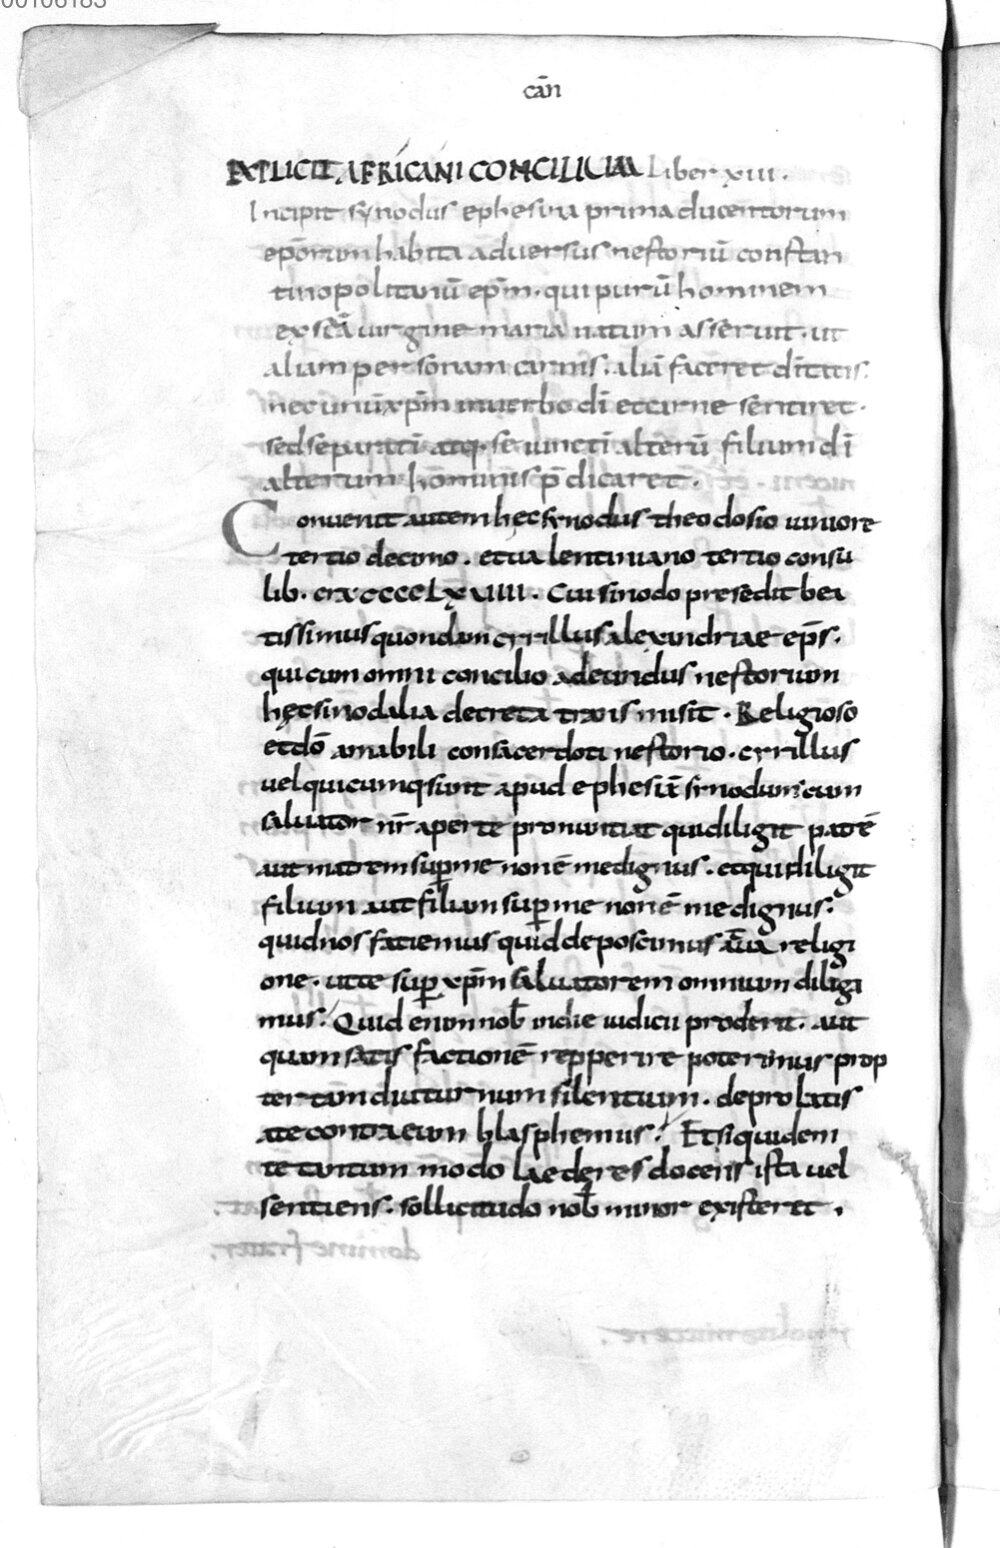 00106183
cān
EXPLICIT AFRICANI CONCILIUM Liber xiii.
Incipit synodus ephesina prima ducentorum
epōrum habita adversus nestoriū constan
tinopolitanū epm̄. qui purū hominem
ex scā virgine maria natum asseruit. ut
aliam personam carnis. aliā faceret dītatis.
nec unū xpm̄ in verbo dī et carne sentiret.
sed separatī atq. seiunctī alterū filium dī
alterum hominis p̄dicaret.
Convenit autem hęc synodus theodosio iuniore
tertio decimo. et valentiniano tertio consu
lib. erxccccLxviiii. Cui sinodo presedit bea
tissimus quondam cyrillus alexandriae ep̄s.
qui cum omni concilio ad eundus nestorium
hęc sinodalia decreta transmisit. Religioso
et dō amabili consacerdoti nestorio. cyrillus
vel quicumq sunt apud ephesiā synodum cum
salvator nr̄ aperte pronuntiat qui diligit patrē
aut matrem sup me non ē me dignus. et qui diligit
filium aut filiam sup me non ē me dignus.
quid nos faciemus quid deposcimus a tua religi
one. ut te sup xpm̄ salvatorem omnium diligi
mus. Quid enim nob in die iudicii proderit. aut
quam satisfactionē repperire poterimus prop
ter tam diuturnum silentium. de prolatis
a te contra eum blasphemiis. Et siquidem
te tantum modo laederes docens ista vel
sentiens. sollicitudo nob minor existeret.